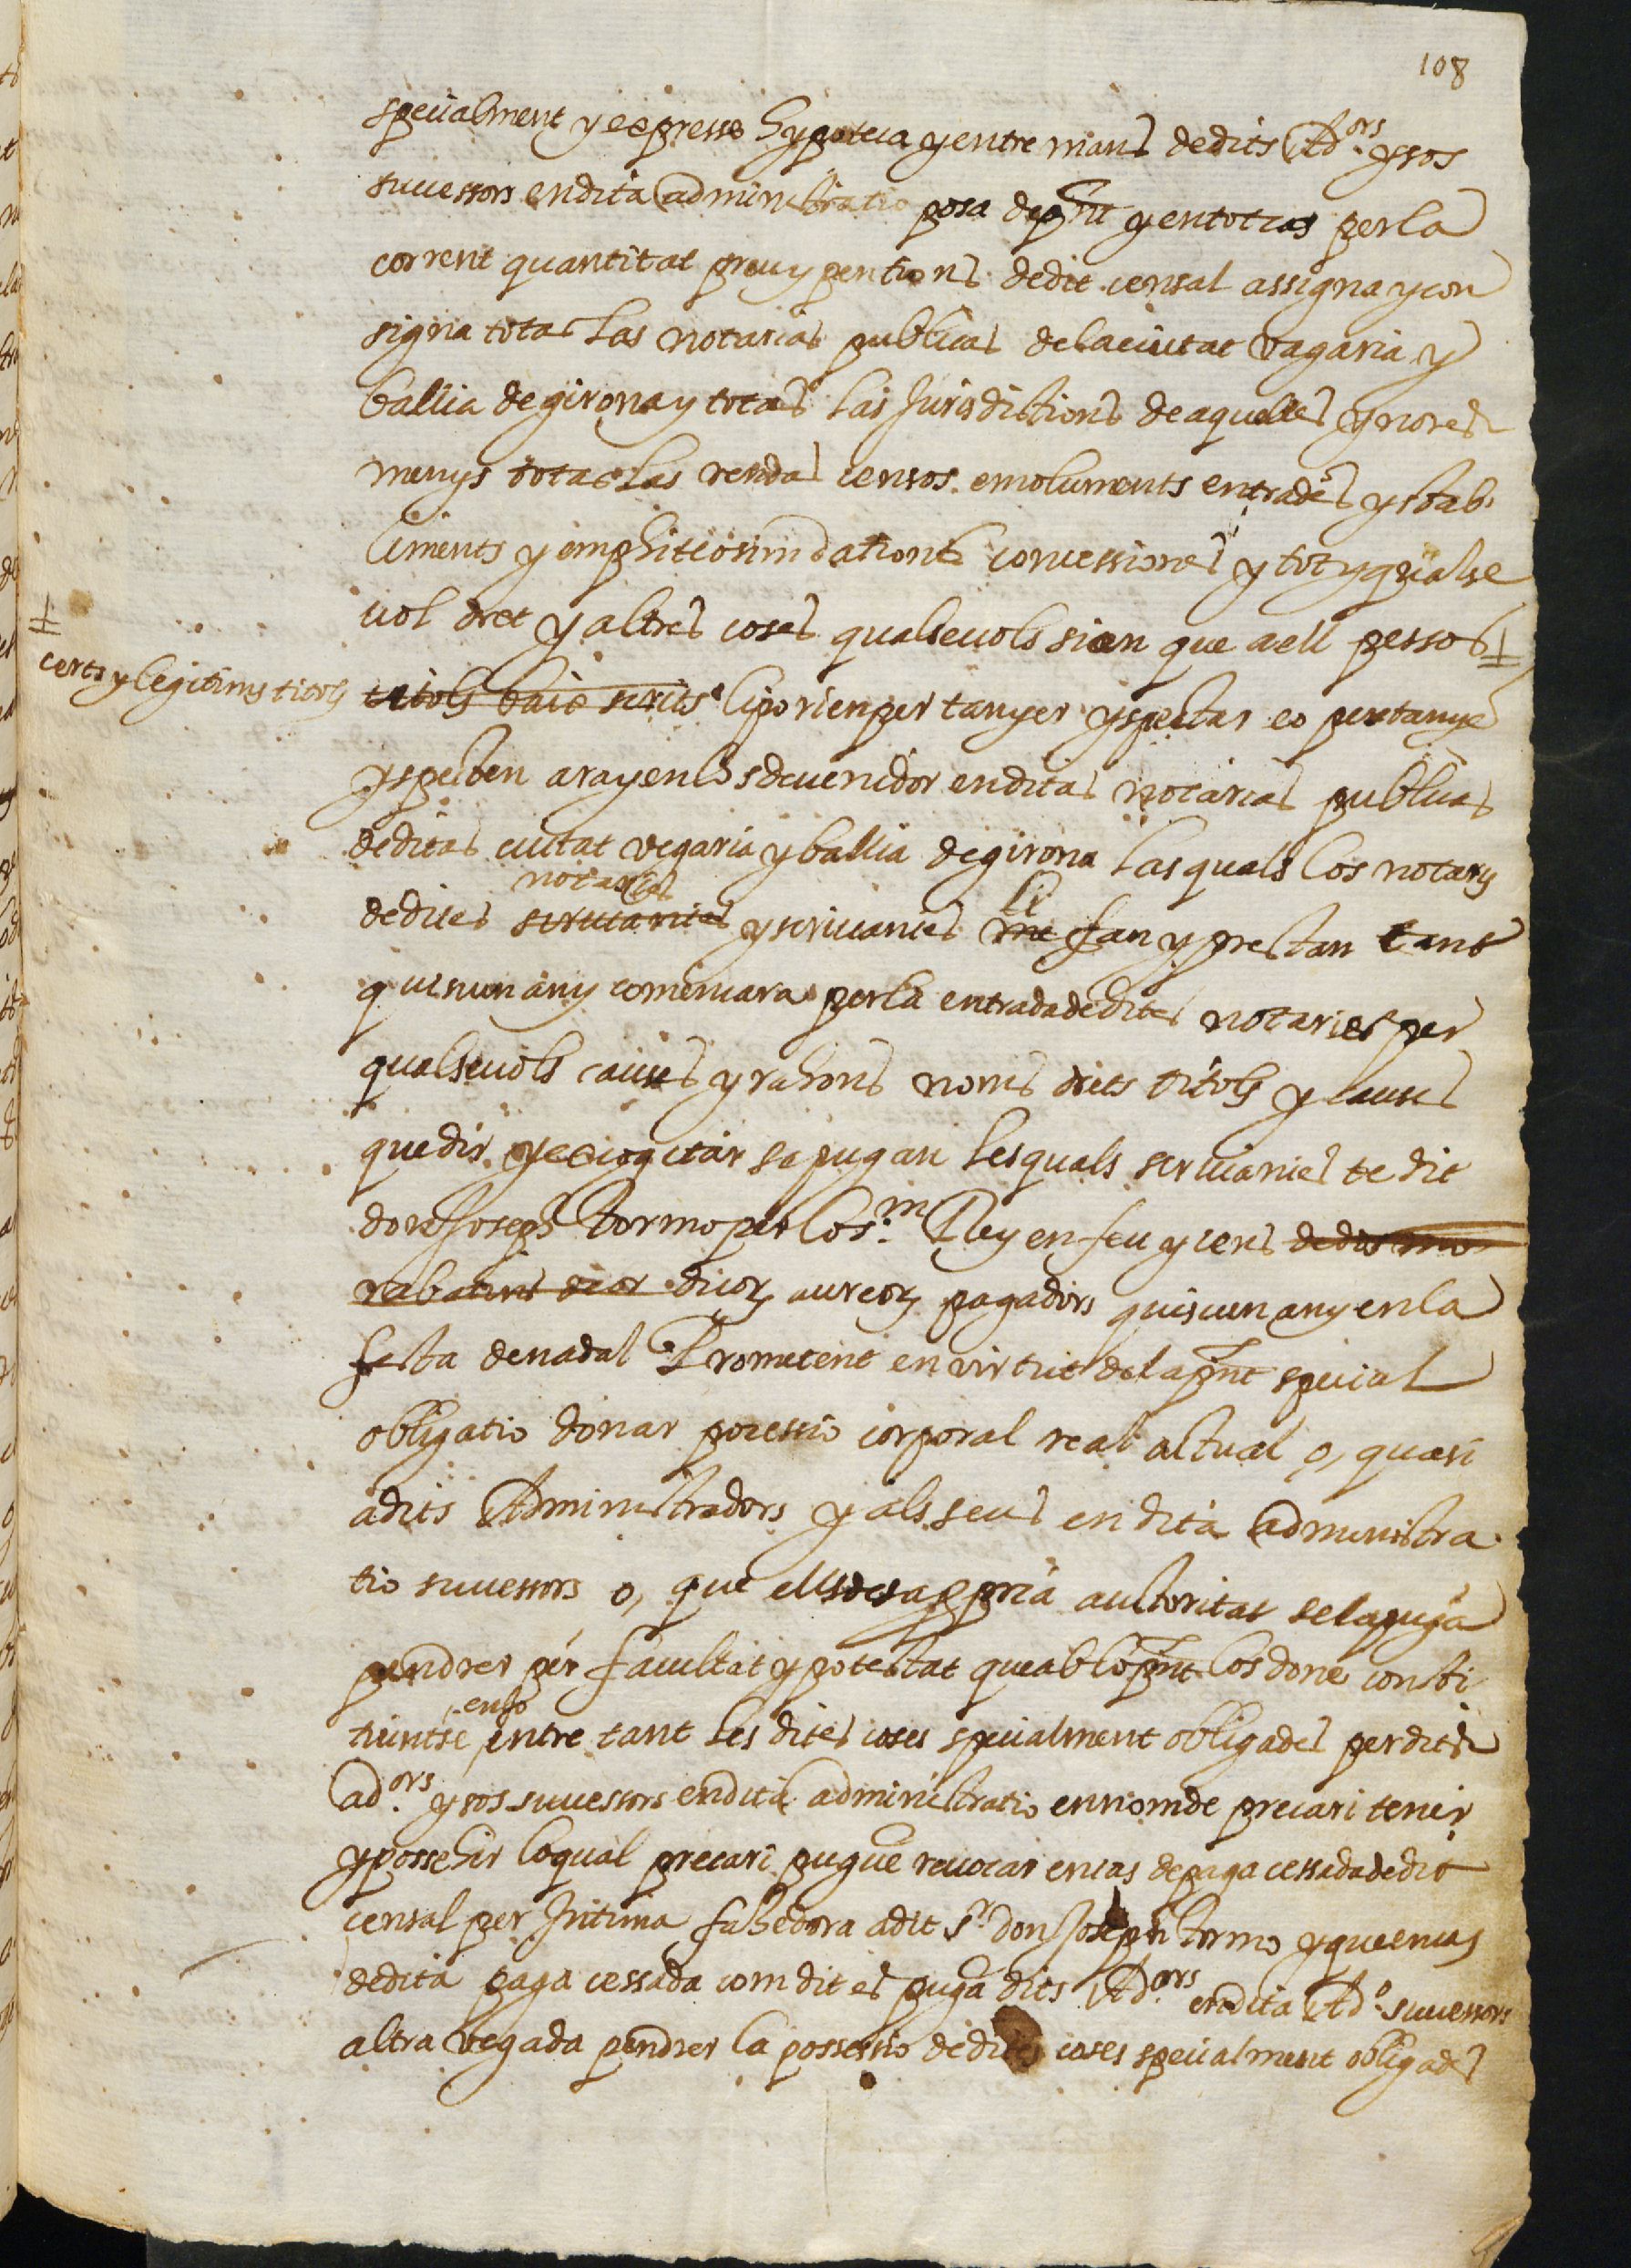 108
specialment y expresso hypoteca y entre mans dedits Ad.ors y sos
successors en dita administratio posa de pnt y en tot cas per la
corrent quantitat preu y pentions dedit censal assigna y con
signa totas las notarias publicas de la ciutat vagaria y
ballia de girona y totas las Jurisdictions de aquelles y no res
menys totas las rendas censos emoluments entrades y stab
liments y emphiteosim dations concessiones y tot y qualse
vol dret y altres coses qualsevols sien que a ell per sos
certs y legitims titols
titols baix scrits li porien pertanyer y spectar eo pertanye
y specten ara y en lo sdevenidor en ditas notarias publicas
de ditas ciutat vegaria y ballia de girona las quals los notaris
notarias
dedites scrivanies y scrivanies me fan y prestan tant
li
quiscun any comensara per la entrada dedites notaries per
qualsevols causes y rahons noms drets titols y causes
que dir y excogitar se pugan les quals scrivanies te dit
don Joseph Tormo per lo s.m Rey en feu y cens de dos mo
rabatins de or duorum aureorum pagadors quiscun any en la
festa de nadal Prometent en virtut de la pnt special
obligatio donar pocessio corporal real actual o, quasi
a dits Administradors y als seus en dita administra
tio successors o, que ells de sa ppria authoritat se la puga
pendrer per facultat y potestat que ab lo pnt los done consti
enso
tuintse entre tant les dites coses specialment obligades per dits
ad.ors y sos successors en dita administratio en nom de precari tenir
y possehir lo qual precari pugue revocar en cas de paga cessada dedit
censal per Intima fahedora a dit s.r don Joseph tormo y que en cas
de dita paga cessada com dit es puga dits Ad.ors en dita Ad.o successors
altra vegada pendrer la possessio de dites coses specialment obligades